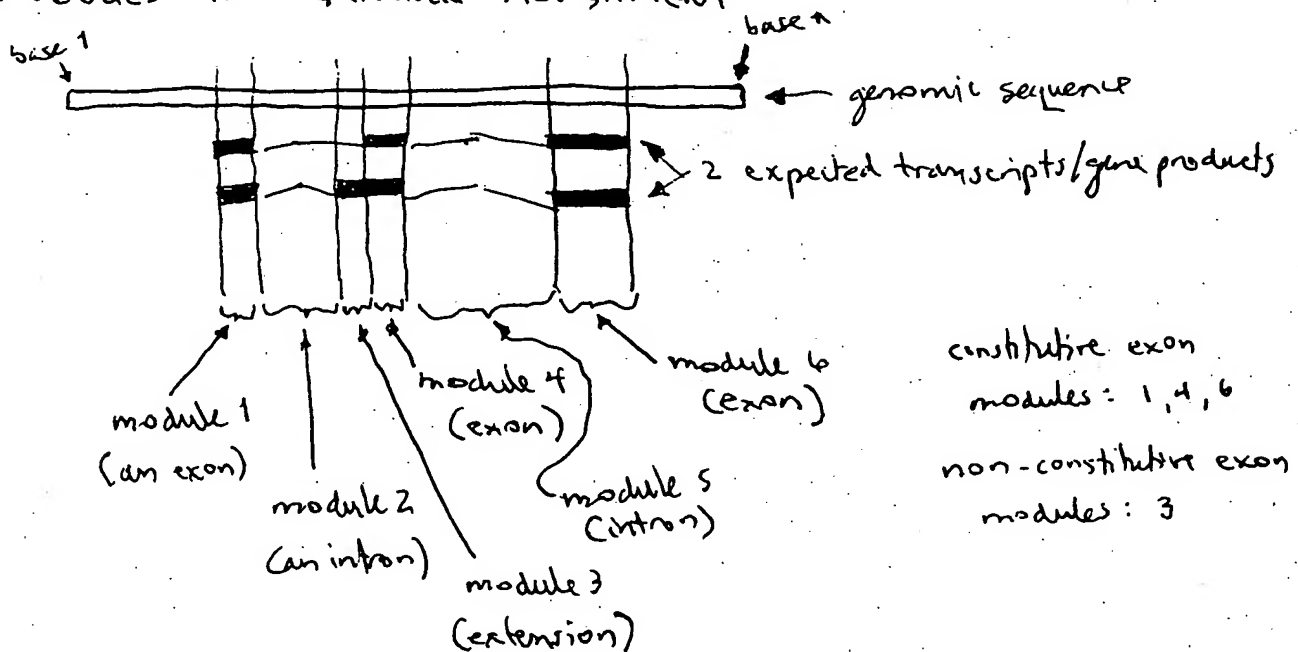 base 1
base n
genomic sequence
2 expected transcripts/gene products
module 1
(an exon)
module 2
(an intron)
module 3
(extension)
module 4
(exon)
module 5
(intron)
module 6
(exon)
constitutive exon
modules: 1, 4, 6
non-constitutive exon
modules: 3